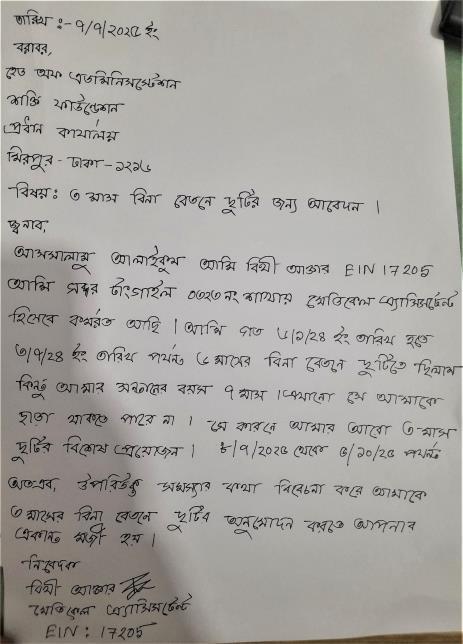 তারিখ :- ৭/৭/২০২৫ ইং
বরাবর,
হেড অফ এডমিনিসস্ট্রেশন
শক্তি ফাউন্ডেশন
প্রধান কার্যালয়
মিরপুর - ঢাকা - ১২১৬
বিষয়: ৩ মাস বিনা বেতনে ছুটির জন্য আবেদন ।
জনাব,
আসসালামু আলাইকুম আমি বিথী আক্তার EIN 17205
আমি সদর টাংগাইল ০৩২৩ নং শাখায় মেডিকেল এ্যাসিসটেন্ট
হিসেবে কর্মরত আছি । আমি গত ইং তারিখ হতে
ইং তারিখ পর্যন্ত ৬ মাসের বিনা বেতনে ছুটিতে ছিলাম
কিন্তু আমার সন্তানের বয়স ৭ মাস । এখনো সে আমাকে
ছাড়া থাকতে পারে না । সে কারনে আমার আরো ৩ মাস
ছুটির বিশেষ প্রয়োজন । ৮/৭/২০২৫ থেকে ৬/১০/২৫ পর্যন্ত
অতএব, উপরিউক্ত সমস্যার কথা বিবেচনা করে আমাকে
৩ মাসের বিনা বেতনে ছুটির অনুমোদন করতে আপনার
একান্ত মর্জী হয় ।
নিবেদক
বিথী আক্তার
মেডিকেল এ্যাসিসটেন্ট
EIN : 17205